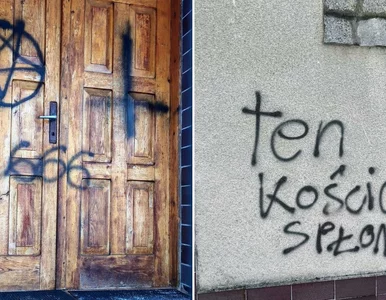 666
ten
Kościo
SPŁON